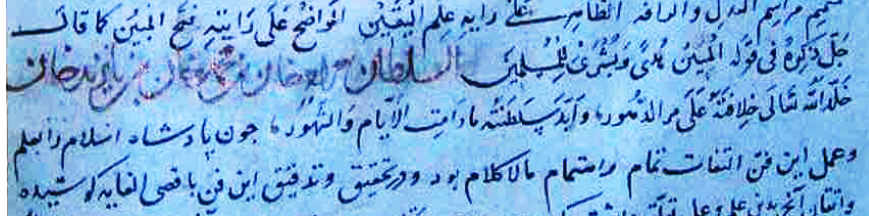 مراسم العدل والرافه الظاهر علی رایه علم الیقین الواضح علی رایته فتح المبین کما قال
جل ذکره فی قوله المبین هدی وبشری للمسلمین السلطان مراد خان بن محمد خان بن بایزید خان
خلد الله تعالی خلافته علی مر الدهور وابد سلطنته مادامت الایام والشهور جون پادشاه اسلام را بعلم
وعمل این فن التفات تمام واهتمام مالاکلام بود ودر تحقیق وتدقیق این فن باقصی الغایه کوشیده